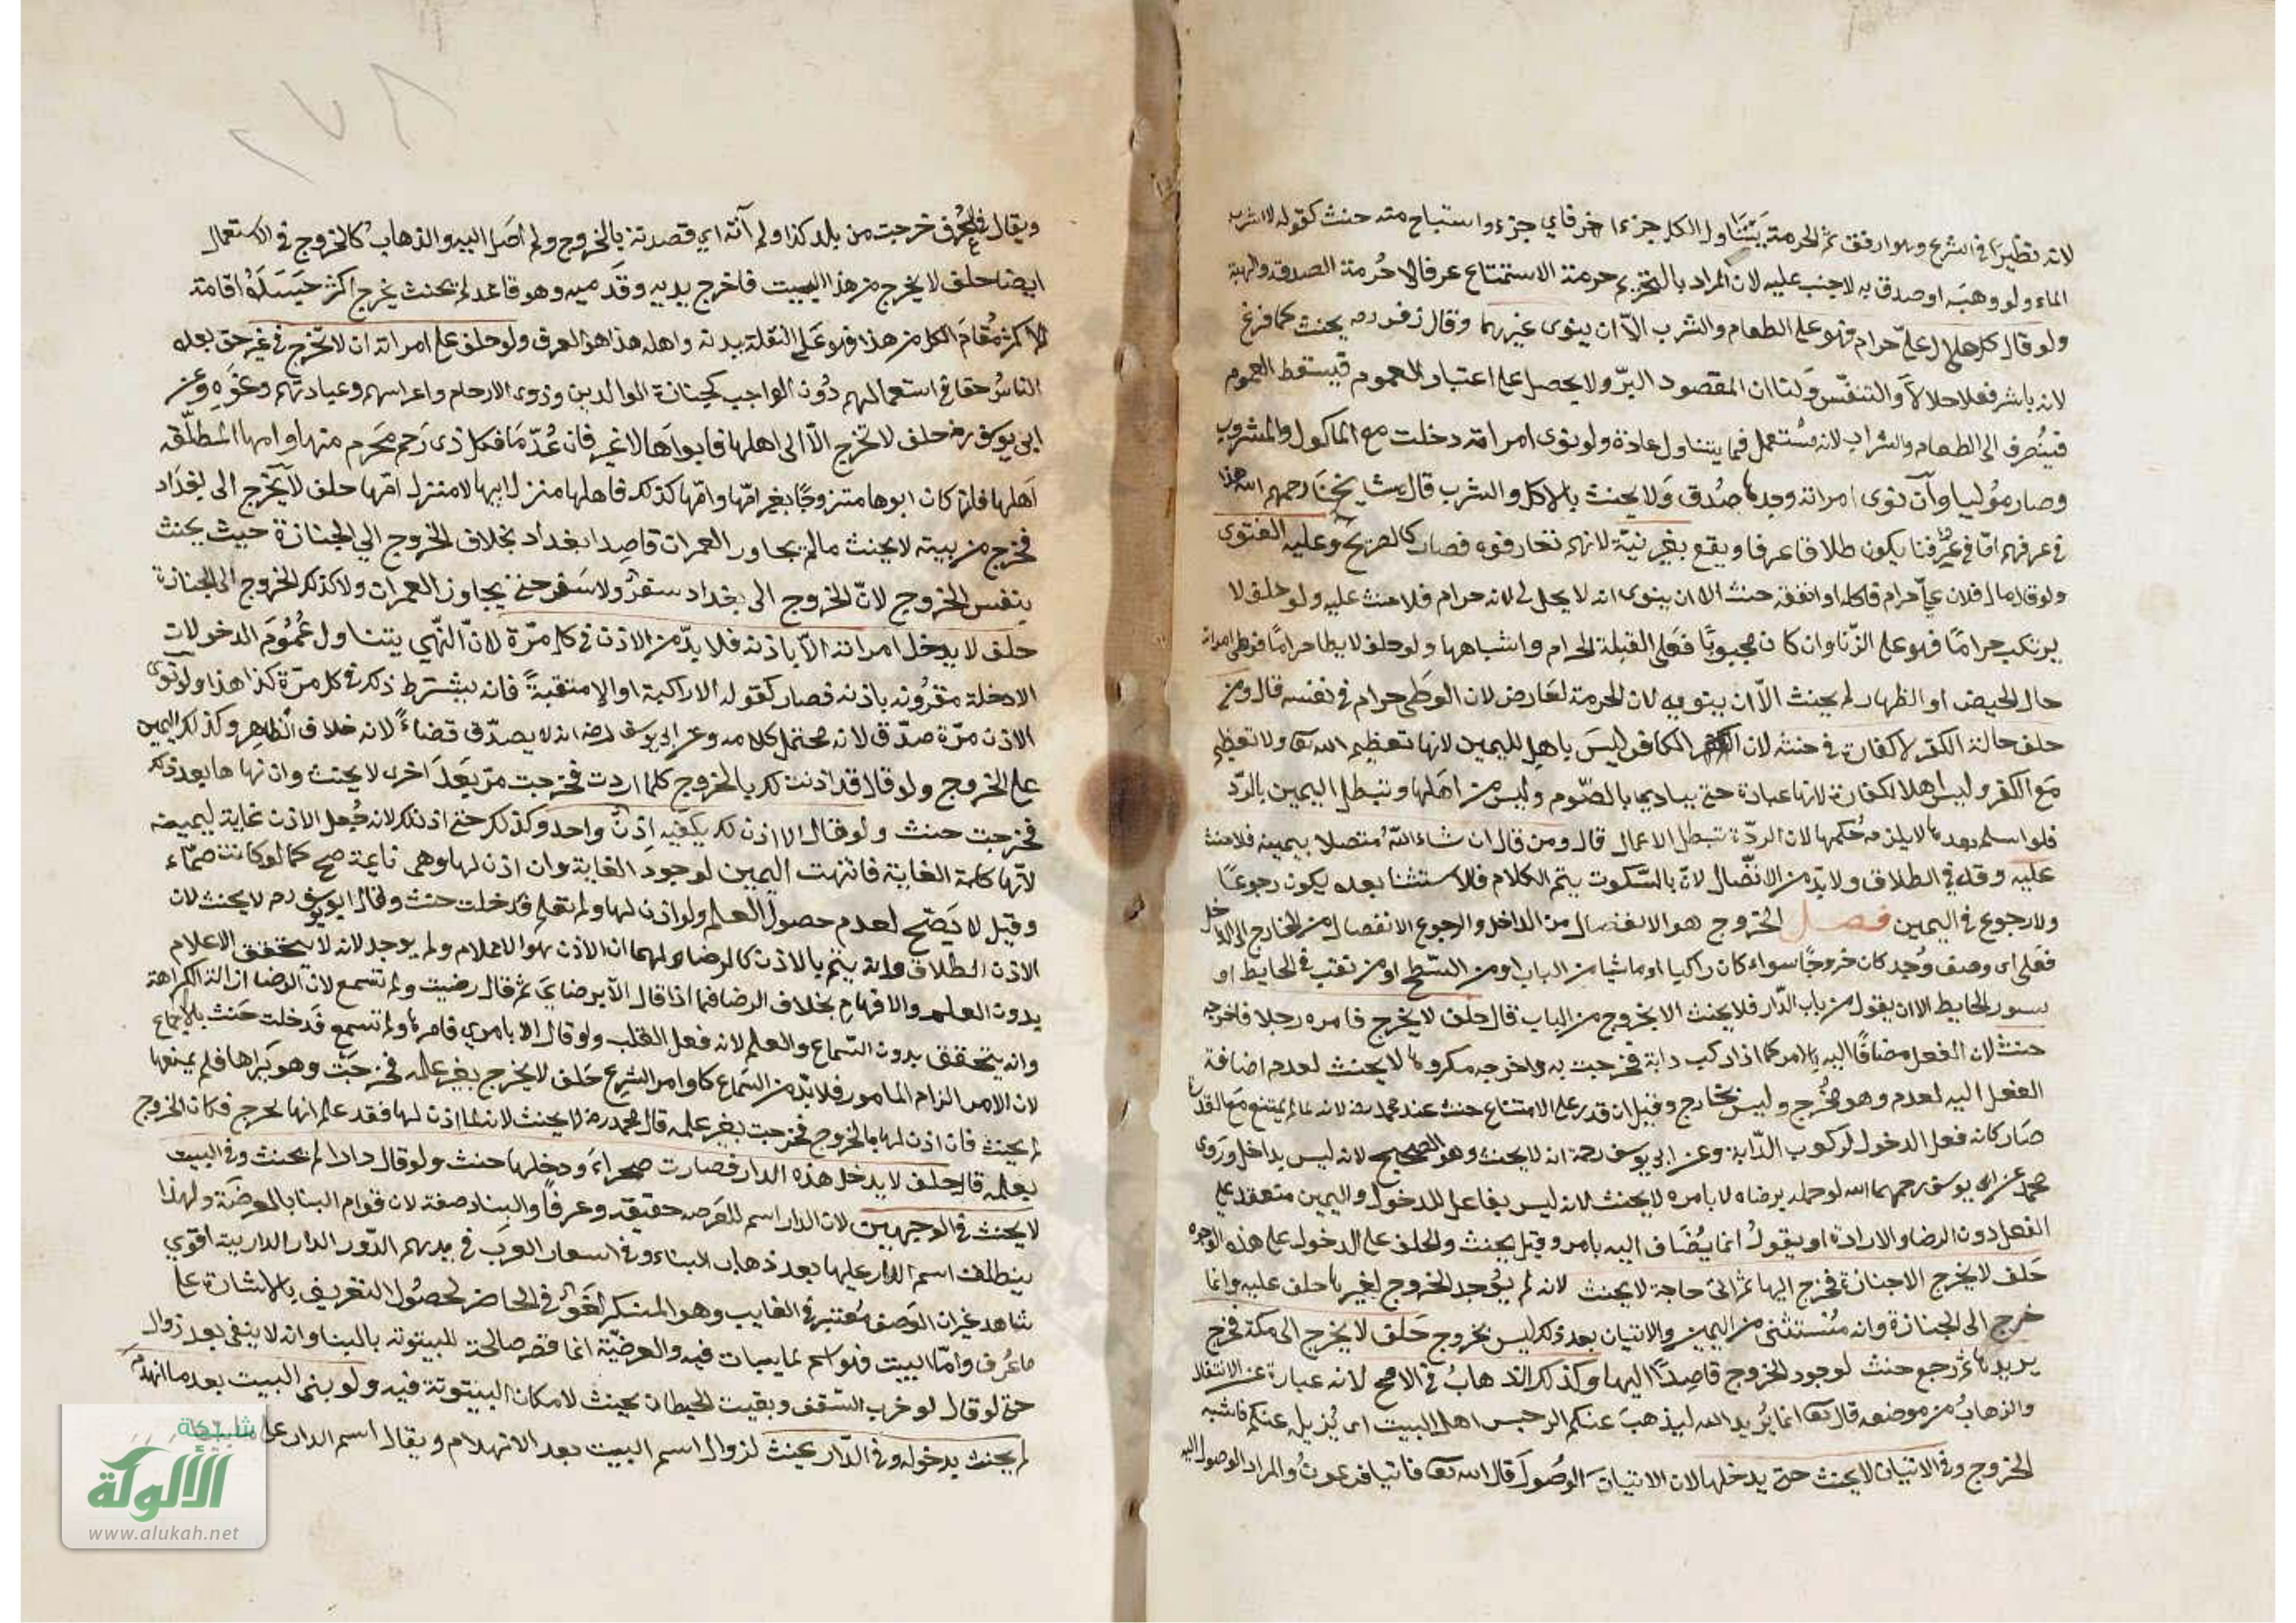 لانه نظيرا في الشرع وهو ارفق ثم الحرمة يتناول الكل جزءا جزءا فاي جزء استباح منه حنث كقوله لا اشرب
الماء ولو وهبه او صدق به لا حنث عليه لان المراد بالتحريم حرمة الاستمتاع عرفا لا حرمة الصدقة والهبة
ولو قال كل حلال علي حرام فهو على الطعام والشرب الا ان ينوي غيرهما وقال زفر رحمه يحنث كما فرغ
لانه باشر فعلا حلالا والتنفس ولنا ان المقصود البر ولا يحصل على اعتبار العموم فيسقط العموم
فينصرف الى الطعام والشراب لانه مستعمل فيما يتناول عادة ولو نوى امراته دخلت مع الماكول والمشروب
وصار موليا وان نوى امراته وحدها صدق ولا يحنث بالاكل والشرب قال مشايخنا رحمهم الله هذا
في عرفهم اما في عرفنا يكون طلاقا عرفا ويقع بغير نية لانهم تعارفوه فصار كالصريح وعليه الفتوى
ولو قال مال فلان علي حرام فاكله او انفقه حنث الا ان ينوي انه لا يحل لي لانه حرام فلا حنث عليه ولو حلف لا
يرتكب حراما فهو على الزنا وان كان مجبوبا فعلى القبلة الحرام واشباهها ولو حلف لا يطا حراما فوطى امراته
حال الحيض او الظهار لم يحنث الا ان ينويه لان الحرمة لعارض لان الوطى حرام في نفسه قال ومن
حلف حالة الكفر لا كفارة في حنثه لان الكافر ليس باهل لليمين لانها تعظيم الله تع ولا تعظيم
مع الكفر وليس اهلا لكفارة لانها عبادة حتى يتادى بالصوم وليس من اهلها وتبطل اليمين بالرد
فلو اسلم بعدها لا يلزمه حكمها لان الردة تبطل الاعمال قال ومن قال ان شاء الله متصلا بيمينه فلا حنث
عليه وقد في الطلاق ولا بد من الاتصال لان بالسكوت يتم الكلام فالاستثنا بعده يكون رجوعا
ولا رجوع في اليمين فصل الخروج هو الانفصال من الداخل والرجوع الانفصال من الخارج الى الداخل
فعلى اي وصف وجد كان خروجا سواء كان راكبا او ماشيا من الباب او من السطح او من نقب في الحايط او
سور الحايط الا ان يقول من باب الدار فلا يحنث الا بخروج من الباب قال حلف لا يخرج فامره رجلا فاخرجه
حنث لان الفعل مضافا اليه بالامر كما اذا ركب دابة فخرجت به ولو اخرجه مكرها لا يحنث لعدم اضافة
الفعل اليه لعدم وهو مخرج وليس بخارج وقيل ان قدر على الامتناع حنث عند محمد رح لانه لما لم يمتنع مع القدرة
صار كانه فعل الدخول كركوب الدابة وعن ابي يوسف رحمه انه لا يحنث وهو الصحيح لانه ليس بداخل وروى
محمد عن ابي يوسف رحمهما الله لو حمله برضاه لا بامره لا يحنث لانه ليس بفاعل للدخول واليمين منعقد على
الفعل دون الرضا والارادة او يقول انما يضاف اليه بامر وقيل يحنث والحلف على الدخول على هذه الوجوه
حلف لا يخرج الا جنازة فخرج اليها ثم اتى حاجة لا يحنث لانه لم يوجد الخروج لغير ما حلف عليه وانما
خرج الى الجنازة وانه مستثنى من اليمين والاتيان بعد ذلك ليس بخروج حلف لا يخرج الى مكة فخرج
يريدها ثم رجع حنث لوجود الخروج قاصدا اليها وكذلك الذهاب في الاصح لانه عبارة عن الانتقال
والذهاب من موضعه قال تع انما يريد الله ليذهب عنكم الرجس اهل البيت اي يزيل عنكم فاشبه
الخروج وفي الاتيان لا يحنث حتى يدخلها لان الاتيان الوصول قال الله تع فاتيا فرعون والمراد الوصول اليه
ويقال في العرف خرجت من بلد كذا ولم آته اي قصدته بالخروج ولم اصل اليه والذهاب كالخروج في الاستعمال
ايضا حلف لا يخرج من هذا البيت فاخرج يديه وقدميه وهو قاعد لم يحنث يخرج اكثر جسده اقامة
للاكثر مقام الكل من هذا فهو على النقلة بدنه واهله هذا هو العرف ولو حلف على امراته ان لا تخرج في غير حق بعده
الناس حقا في استعمالهم دون الواجب كجنازة الوالدين وذوى الارحام واعراسهم وعيادتهم ونحوه وعن
ابي يوسف رح حلف لا تخرج الا الى اهلها فابواها لا غير فان عدما فكل ذي رحم محرم منها وامها المطلقة
اهلها فلو كان ابوها متزوجا بغير امها وامها كذلك فاهلها منزل ابيها لا منزل امها حلف لا يخرج الى بغداد
فخرج من بيته لا يحنث مالم يجاوز العمرات قاصدا بغداد بخلاف الخروج الى الجنازة حيث يحنث
بنفس الخروج لان الخروج الى بغداد سفر ولا سفر حتى يجاوز العمرات ولا كذلك الخروج الى الجنازة
حلف لا يدخل امراته الا باذنه فلا بد من الاذن في كل مرة لان النهي يتناول عموم الدخولات
الا دخلة مقرونه باذنه فصار كقوله الا راكبة او الا متقبة فانه يشترط ذلك في كل مرة كذا هذا ولو نوى
الاذن مرة صدق لانه محتمل كلامه وعن ابي يوسف رضه انه لا يصدق قضاء لانه خلاف الظاهر وكذلك اليمين
على الخروج ولو قال قد اذنت لك بالخروج كلما اردت فخرجت مرة بعد اخرى لا يحنث وان نهاها بعد ذلك
فخرجت حنث ولو قال الا اذن لك يكفيه اذن واحد وكذلك حتى اذنلك لانه جعل الاذن غاية ليمينه
لانها كلمة الغاية فانتهت اليمين لوجود الغاية وان اذن لها وهي نايمة صح كما لو كانت صماء
وقيل لا يصح لعدم حصول العلم ولو اذن لها ولم تعلم فدخلت حنث وقال ابو يوسف رحه لا يحنث لان
الاذن اطلاق وانه يتم بالاذن كالرضا ولهما ان الاذن هو الاعلام ولم يوجد لانه لا يتحقق الاعلام
بدون العلم والافهام بخلاف الرضا فما اذا قال الا برضاي ثم قال رضيت ولم تسمع لان الرضا ازالة الكراهة
وانه يتحقق بدون السماع والعلم لانه فعل القلب ولو قال الا بامري فامرها ولم تسمع فدخلت حنث بالاجماع
لان الامر الزام المامور فلا بد من السماع كاوامر الشرع حلف لا يخرج بغير علمه فخرجت وهو يراها فلم يمنعها
لم يحنث فان اذن لها بالخروج فخرجت بغير علمه قال محمد رضه لا يحنث لانه لما اذن لها فقد علم انها تخرج فكان الخروج
بعلمه قال حلف لا يدخل هذه الدار فصارت صحراء ودخلها حنث ولو قال دارا لم يحنث وفي البيت
لا يحنث في الوجهين لان الدار اسم للعرصة حقيقة وعرفا والبناء صفة لان قوام البنا بالعرصة ولهذا
ينطلق اسم الدار عليها بعد ذهاب البناء وفي اسعار العرب في مديهم الدور الدار الدار بية اقوي
شاهد غير ان الوصف معتبر في الغايب وهو المنكر لغو في الحاضر لحصول التعريف بالاشارة على
ما عرف واما البيت فهو اسم لما يبات فيه والعرصة انما فصر صالحة للبيتوتة بالبنا وانه لا يبقى بعد زوال
حتى لو قال لو خرب السقف وبقيت الحيطان يحنث لامكان البيتوتة فيه ولو بنى البيت بعد ما انهدم
لم يحنث بدخوله وفي الدار يحنث لزوال اسم البيت بعد الانهدام ويقال اسم الدار على
شبكة
الألوكة
www.alukah.net